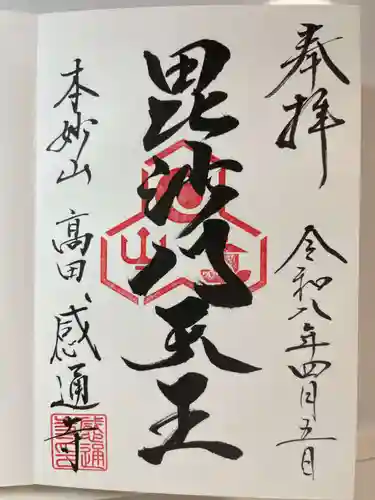 奉拝
令和八年四月五日
毘沙門天王
本妙山 高田、感通寺
感通